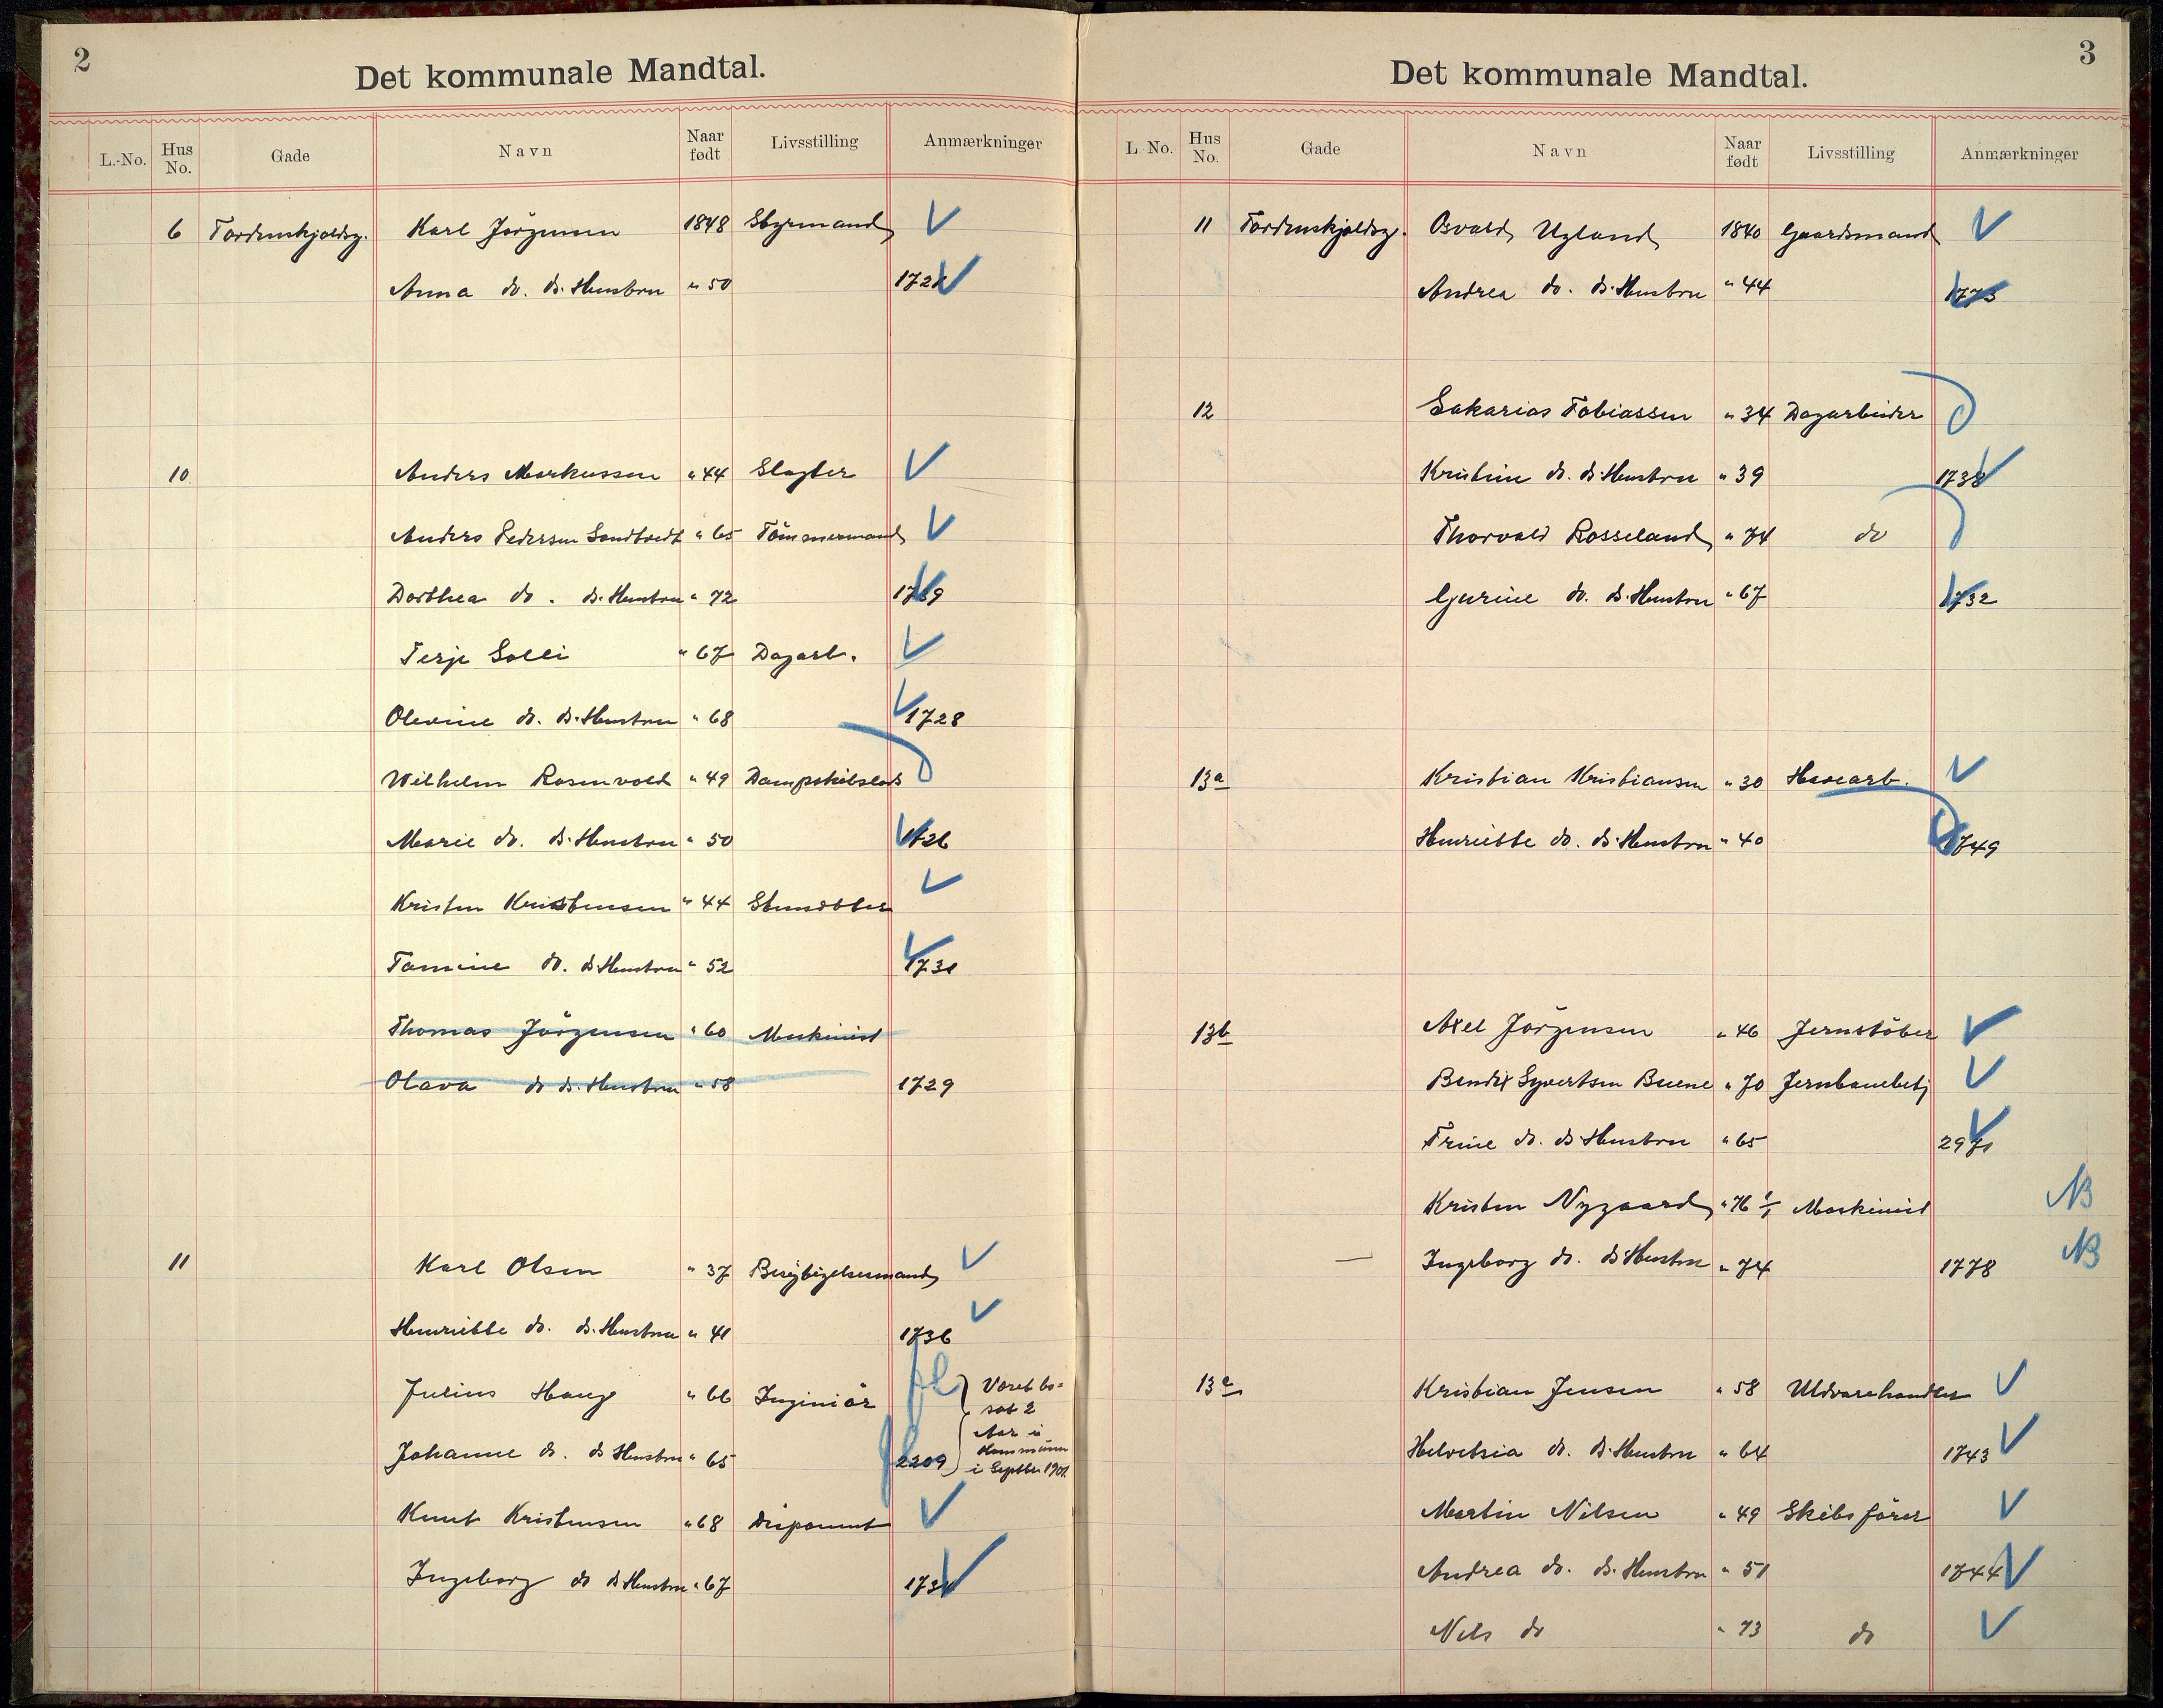 2
Det kommunale Mandtal.
L.-No. Hus No. Gade Navn Naar født Livsstilling Anmærkninger
6 Tordenskjoldsg. Karl Jörgensen 1848 Styrmand
Anna do. d. Hustru " 50
10 Anders Markussen " 44 Slagter
Anders Pedersen Sandtvedt " 65 Tömmermand
Dorthea do. d. Hustru " 72
Terje Solli " 67 Dagarb.
Olevine do. d. Hustru " 68 1728
Wilhelm Rosenvold " 49 Dampskibslods
Marie do. d. Hustru " 50 1726
Kristen Kristensen " 44 Skundtler
Tomine do. d Hustru " 52 1731
Thomas Jörgensen " 60 Maskinist
Olava do d. Hustru " 58 1729
11 Karl Olsen " 37 Besigtigelsesmand
Henriette do. d. Hustru " 41 1736
Julius Hauge " 66 Inginiör fl Været bo=
sat 2
Aar i
Kommunen
Johanne do. d Hustru " 65 2209 i Septbr 1901
Knut Kristensen " 68 Disponent
Ingeborg do d Hustru " 67
3
Det kommunale Mandtal.
L. No. Hus No. Gade Navn Naar født Livsstilling Anmærkninger
11 Tordenskjoldsg. Osvald Ugland 1840 Gaardsmand
Andrea do. d. Hustru " 44 1773
12 Sakarias Tobiassen " 34 Dagarbeider
Kristine do. d. Hustru " 39 1738
Thorvald Rosseland " 74 do
Gurine do. d. Hustru " 67 1732
13a Kristian Kristiansen " 30 Havearb.
Henriette do. d. Hustru " 40 1749
13b Axel Jörgensen " 46 Jernstöber
Bendix Syvertsen Buene " 70 Jernbanebetj
Trine do. d. Hustru " 65 2971
Kristen Nygaard " 76 1/1 Maskinist NB
Ingeborg do. d. Hustru " 74 1778 NB
13c Kristian Jensen " 58 Uldvarehandler
Helvetsia do. d. Hustru " 64 1743
Martin Nilsen " 49 Skibsförer
Andrea do. d. Hustru " 51 1744
Nils do " 73 do